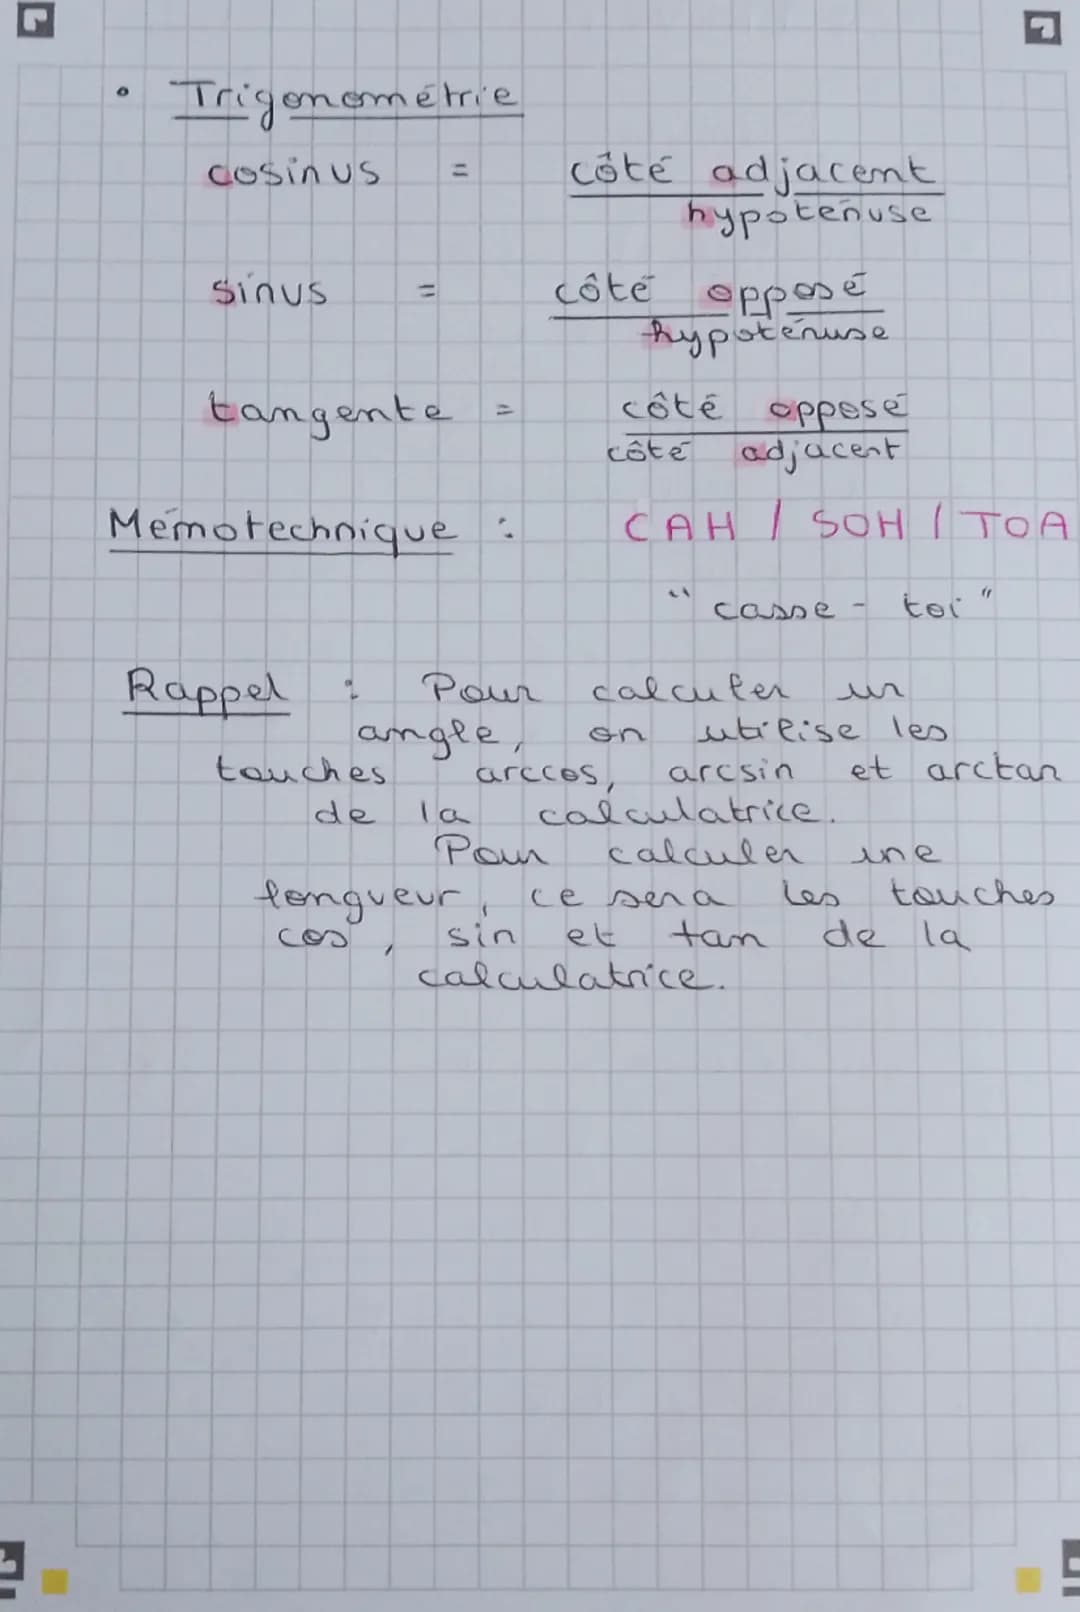 • Trigonométrie
cosinus = côté adjacent
hypoténuse
sinus = côté opposé
hypoténuse
tangente = côté opposé
côté adjacent
Mémotechnique : CAH / SOH / TOA
"casse-toi"
Rappel : Pour calculer un
angle, on utilise les
touches arccos, arcsin et arctan
de la calculatrice.
Pour calculer une
longueur, ce sera les touches
cos, sin et tan de la
calculatrice.